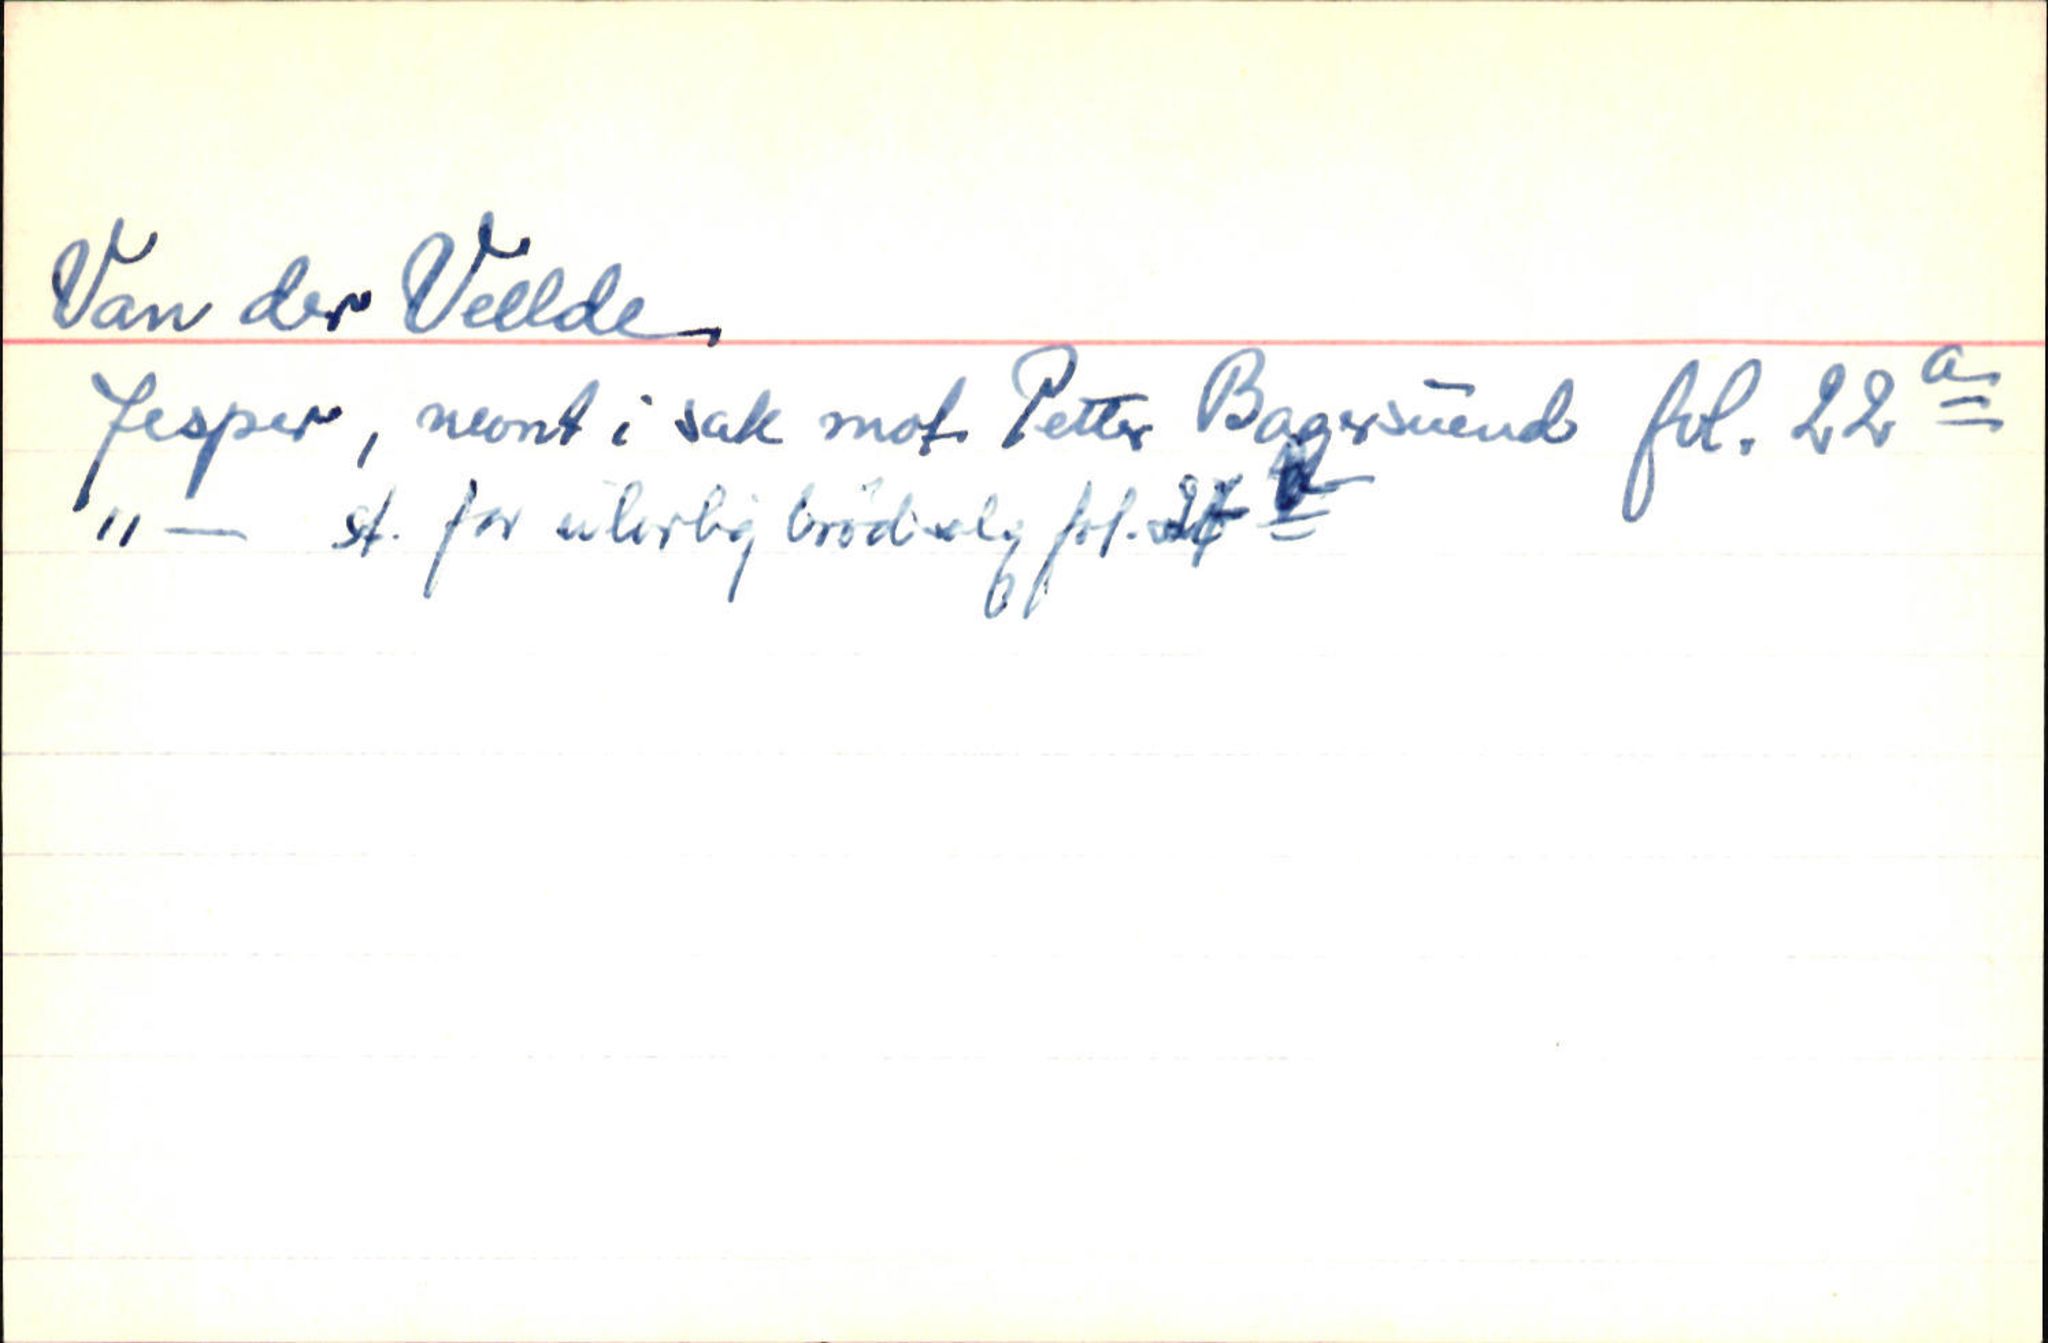 Van der Vellde
Jesper, nevnt i sak mot Petter Bagersuend fol. 22 a
"— st. for ulovlig brödsalg fol.